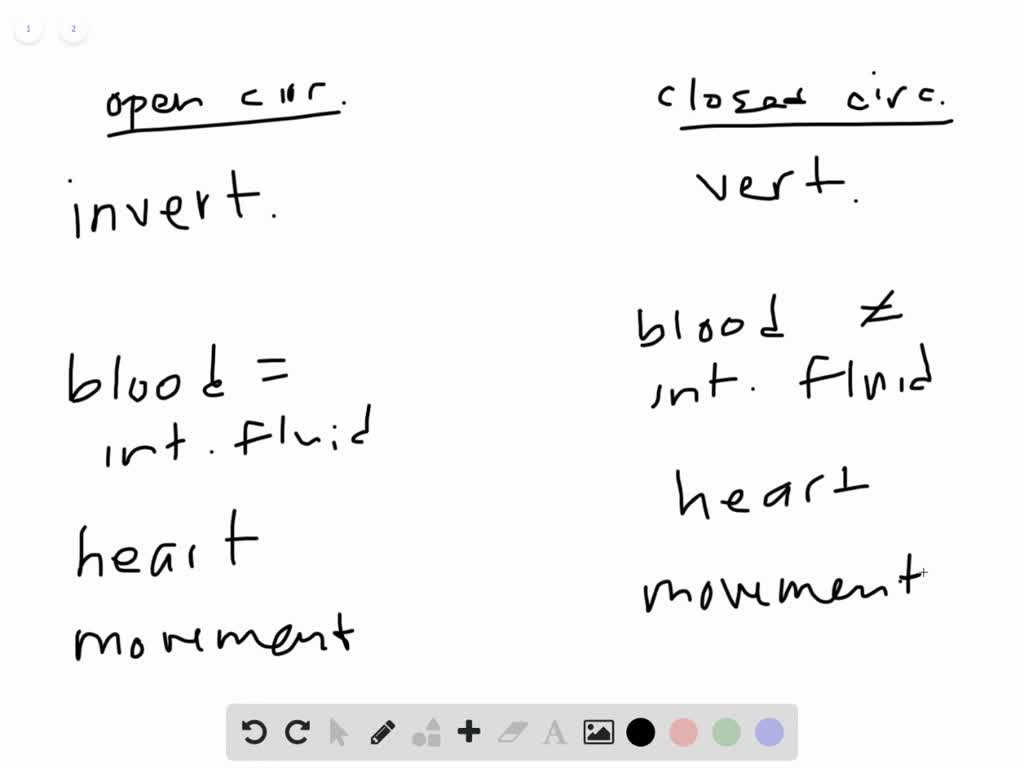 1 2
open cir.
invert.
blood =
int. fluid
heart
movement
closed circ.
vert.
blood ≠
int. fluid
heart
movement
A